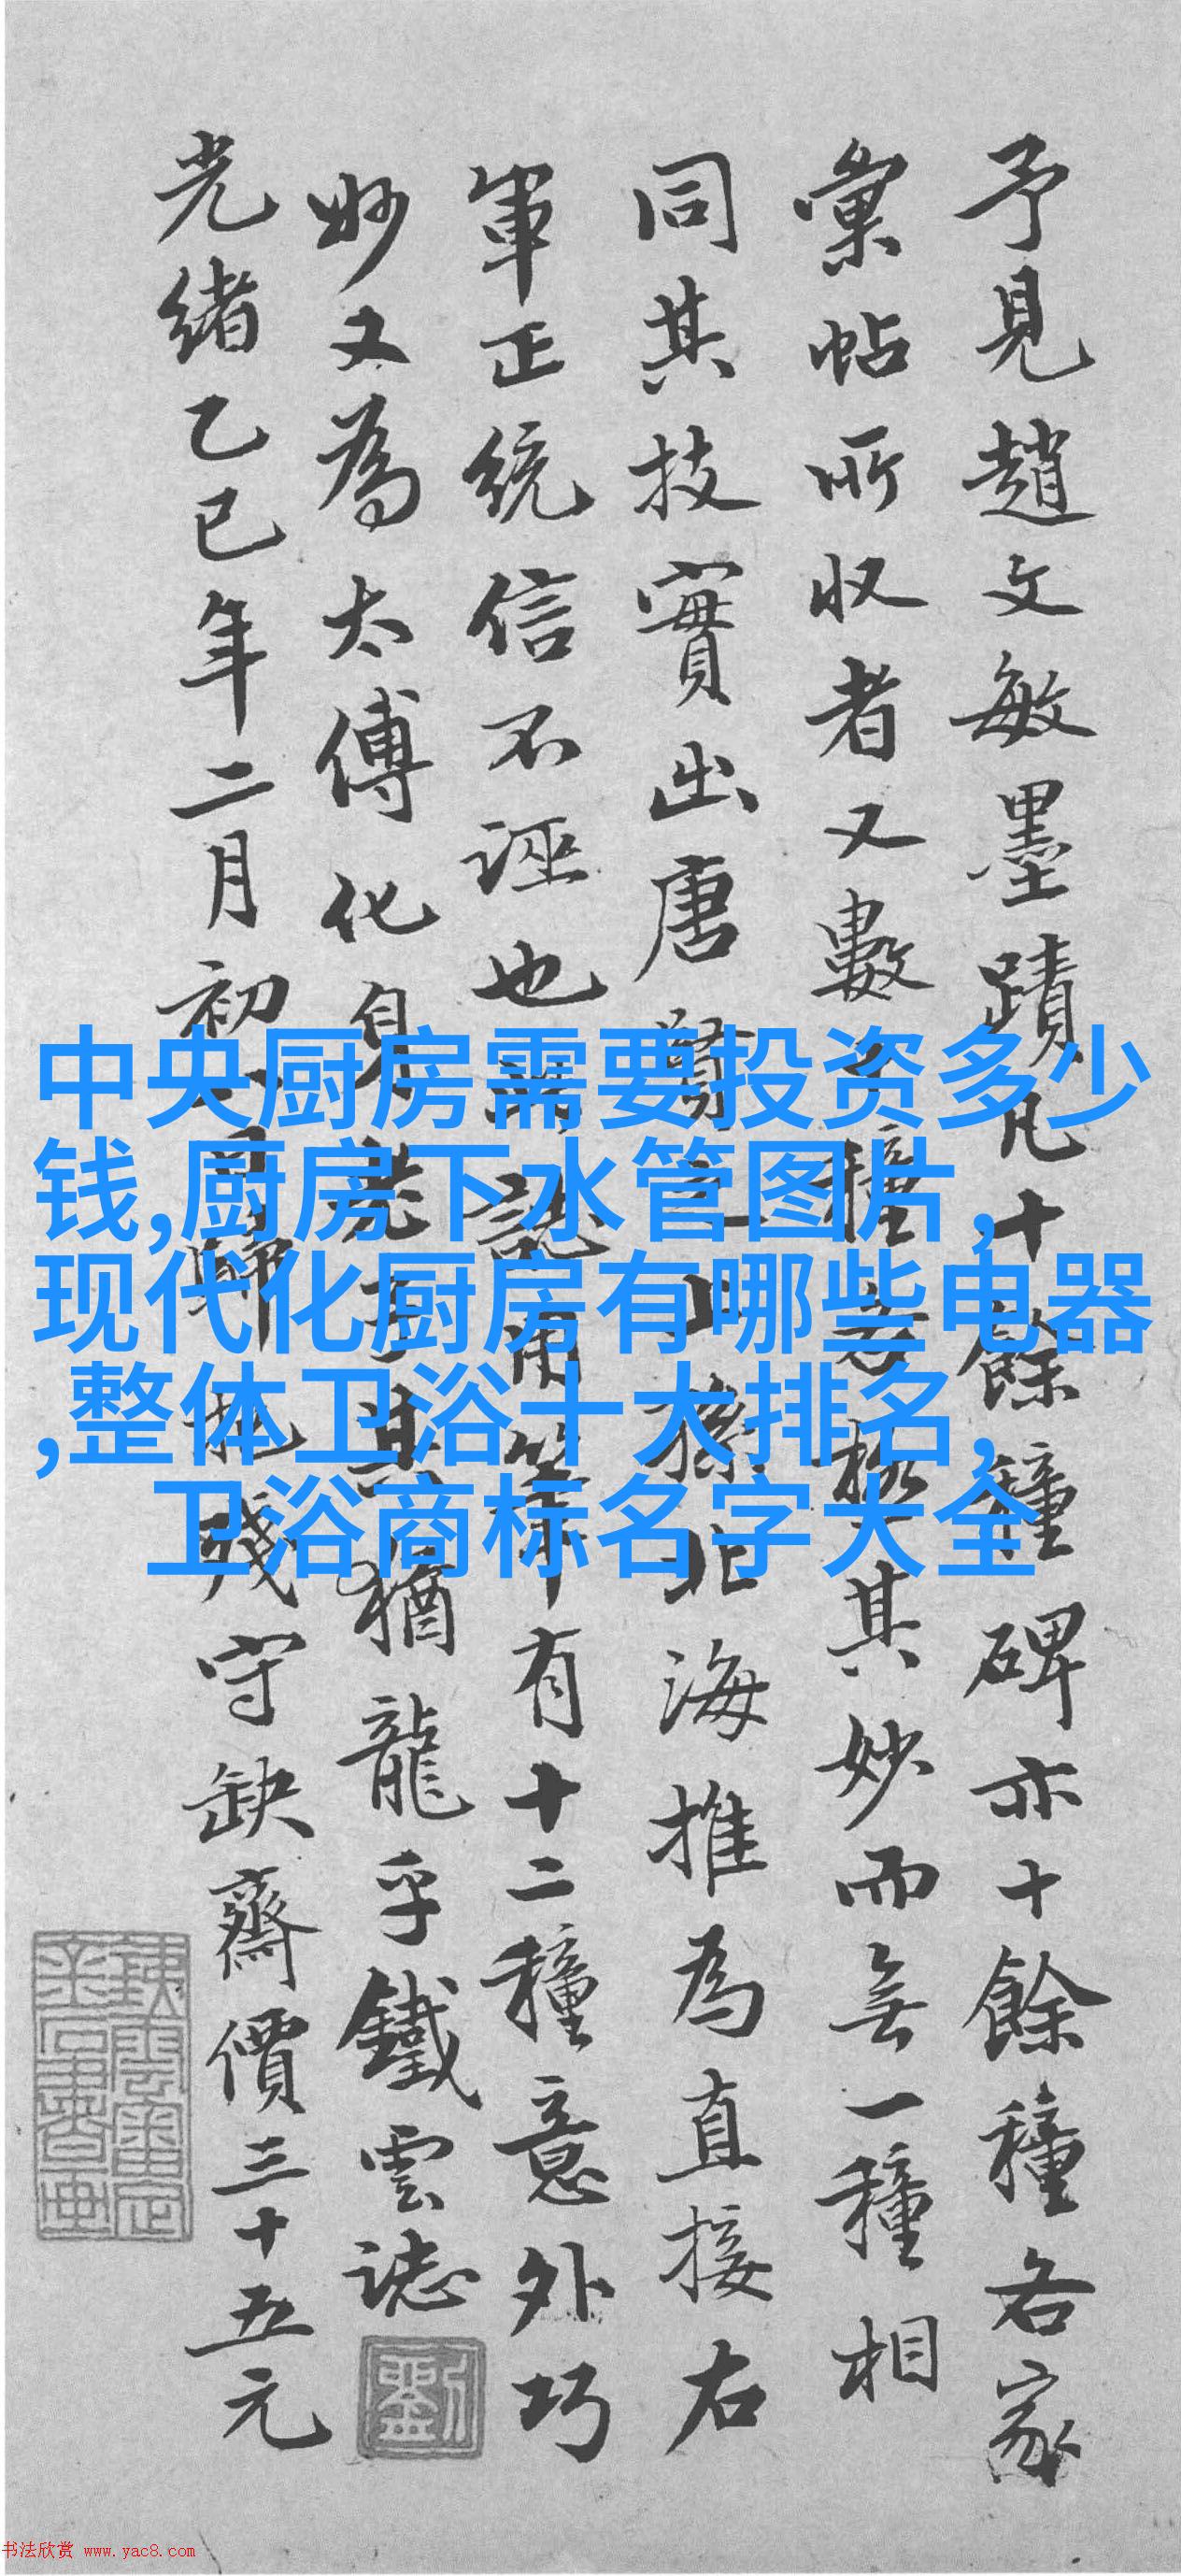 予見趙文敏墨蹟凡十餘種碑亦十餘種各家
彙帖所収者又數種極其妙而無一種相
同其技實出唐賢孫北海推為直接右
軍正統信不誣也用筆有十二種意外巧
妙又為太傅化身老子其猶龍乎鐵雲誌
光緒乙巳年二月初日歸抱殘守缺齋價三十五元
劉
鐵雲審定
金石書畫
中央厨房需要投资多少
钱,厨房下水管图片,
现代化厨房有哪些电器
,整体卫浴十大排名,
卫浴商标名字大全
书法欣赏 www.yac8.com